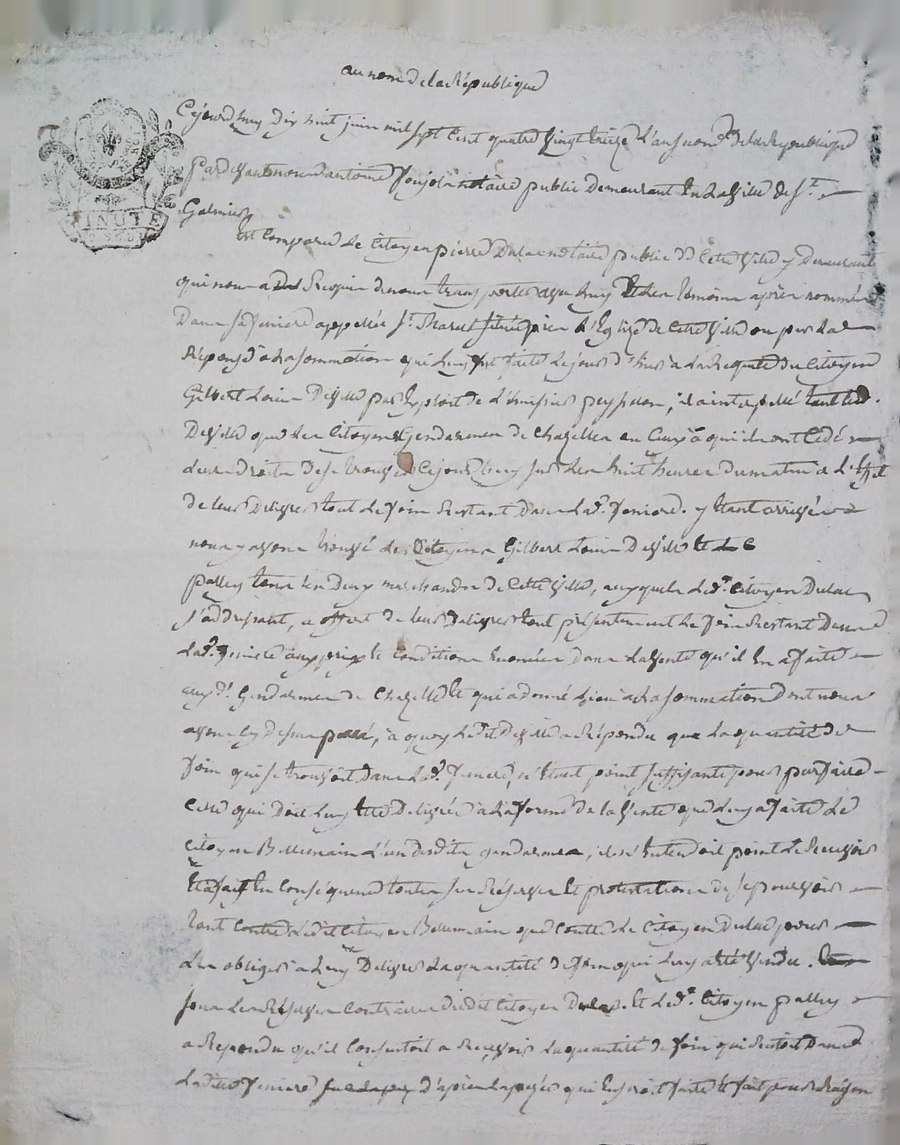 au nom de la République
Cejourd'huy dix huit juin mil sept cent quatre vingt treize l'an second de la République
Pardevant nous antoine notaire public demeurant en la ville de St.
Galmier
Est comparu le Citoyen pierre Dulac notaire public de cette ville y demeurant
qui nous a requis de nous transporter avec luy et les témoins après nommés
Dans sa feniere appellée St. l'Eglise de cette ville ou pour la
Réponse à la sommation qui luy fut faite le jour d'hier à la Requete du Citoyen
Gilbert Louis Deville par Exploit de l'huissier peyssson, il a interpellé
Deville que les Citoyens Gendarmes de Chazelles ou Ceux à qui ils ont Cédé
leurs droits de se trouver Cejourd'huy sur les huit heures du matin à l'effet
de leur Delivrer tout le foin Restant Dans lad. feniere. y étant arrivés
nous y avons trouvé les Citoyens Gilbert Louis Deville et
palley tous les Deux marchands de Cette ville, auxquels led. Citoyen Dulac
s'addressant, a offert de leur Delivrer tout présentement le foin Restant Dans
Lad. feniere aux prix et conditions énoncées dans la vente qu'il En a faite
auxd. Gendarmes de Chazelles et qui a donné Lieu à la sommation dont nous
avons Cy dessus parlé, à quoy ledit Deville a Répondu que la quantité de
foin qui se trouvoit Dans lad. feniere, n'étant point suffisante pour parfaire
Celle qui doit luy être Delivrée à la forme de la Vente que luy a faite le
Citoyen Bellemain l'un desdits gendarmes, il n'entendoit point le Recevoir
Et a fait En Conséquence toutes ses Réserves et protestations de se pourvoir
tant Contre ledit Citoyen Bellemain que contre le Citoyen Dulac pour
Les obliger à luy Delivrer la quantité de foin qui luy a été vendu.
sous les Réserves Contraires dudit Citoyen Dulac. Et led. Citoyen palley
a Repondu qu'il Consentoit à Recevoir la quantité de foin qui Restoit Dans
Ladite feniere d'après la pezée qui En seroit faite et fait pour Raison